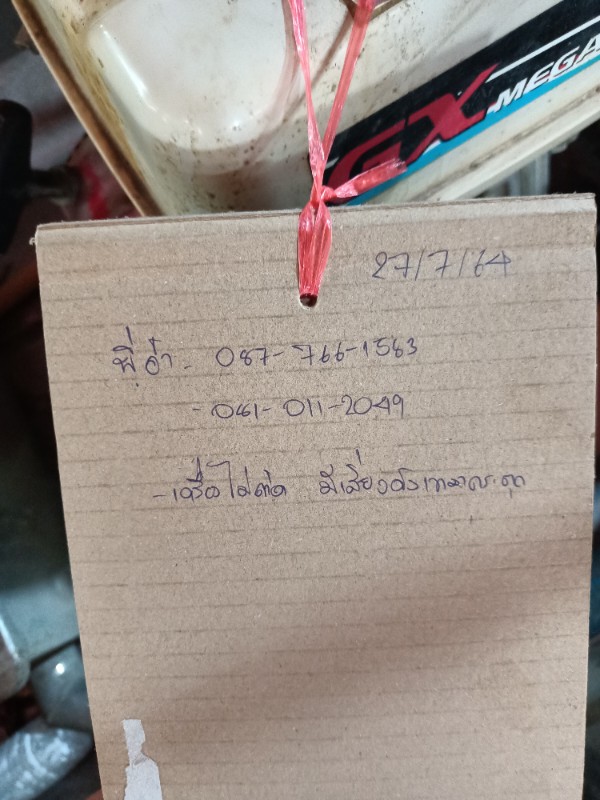 GX MEGA
27/7/64
พี่อ๋ำ - 087-766-1563
- 081-011-2049
- เครื่องไม่ติด มีเสียงดัง